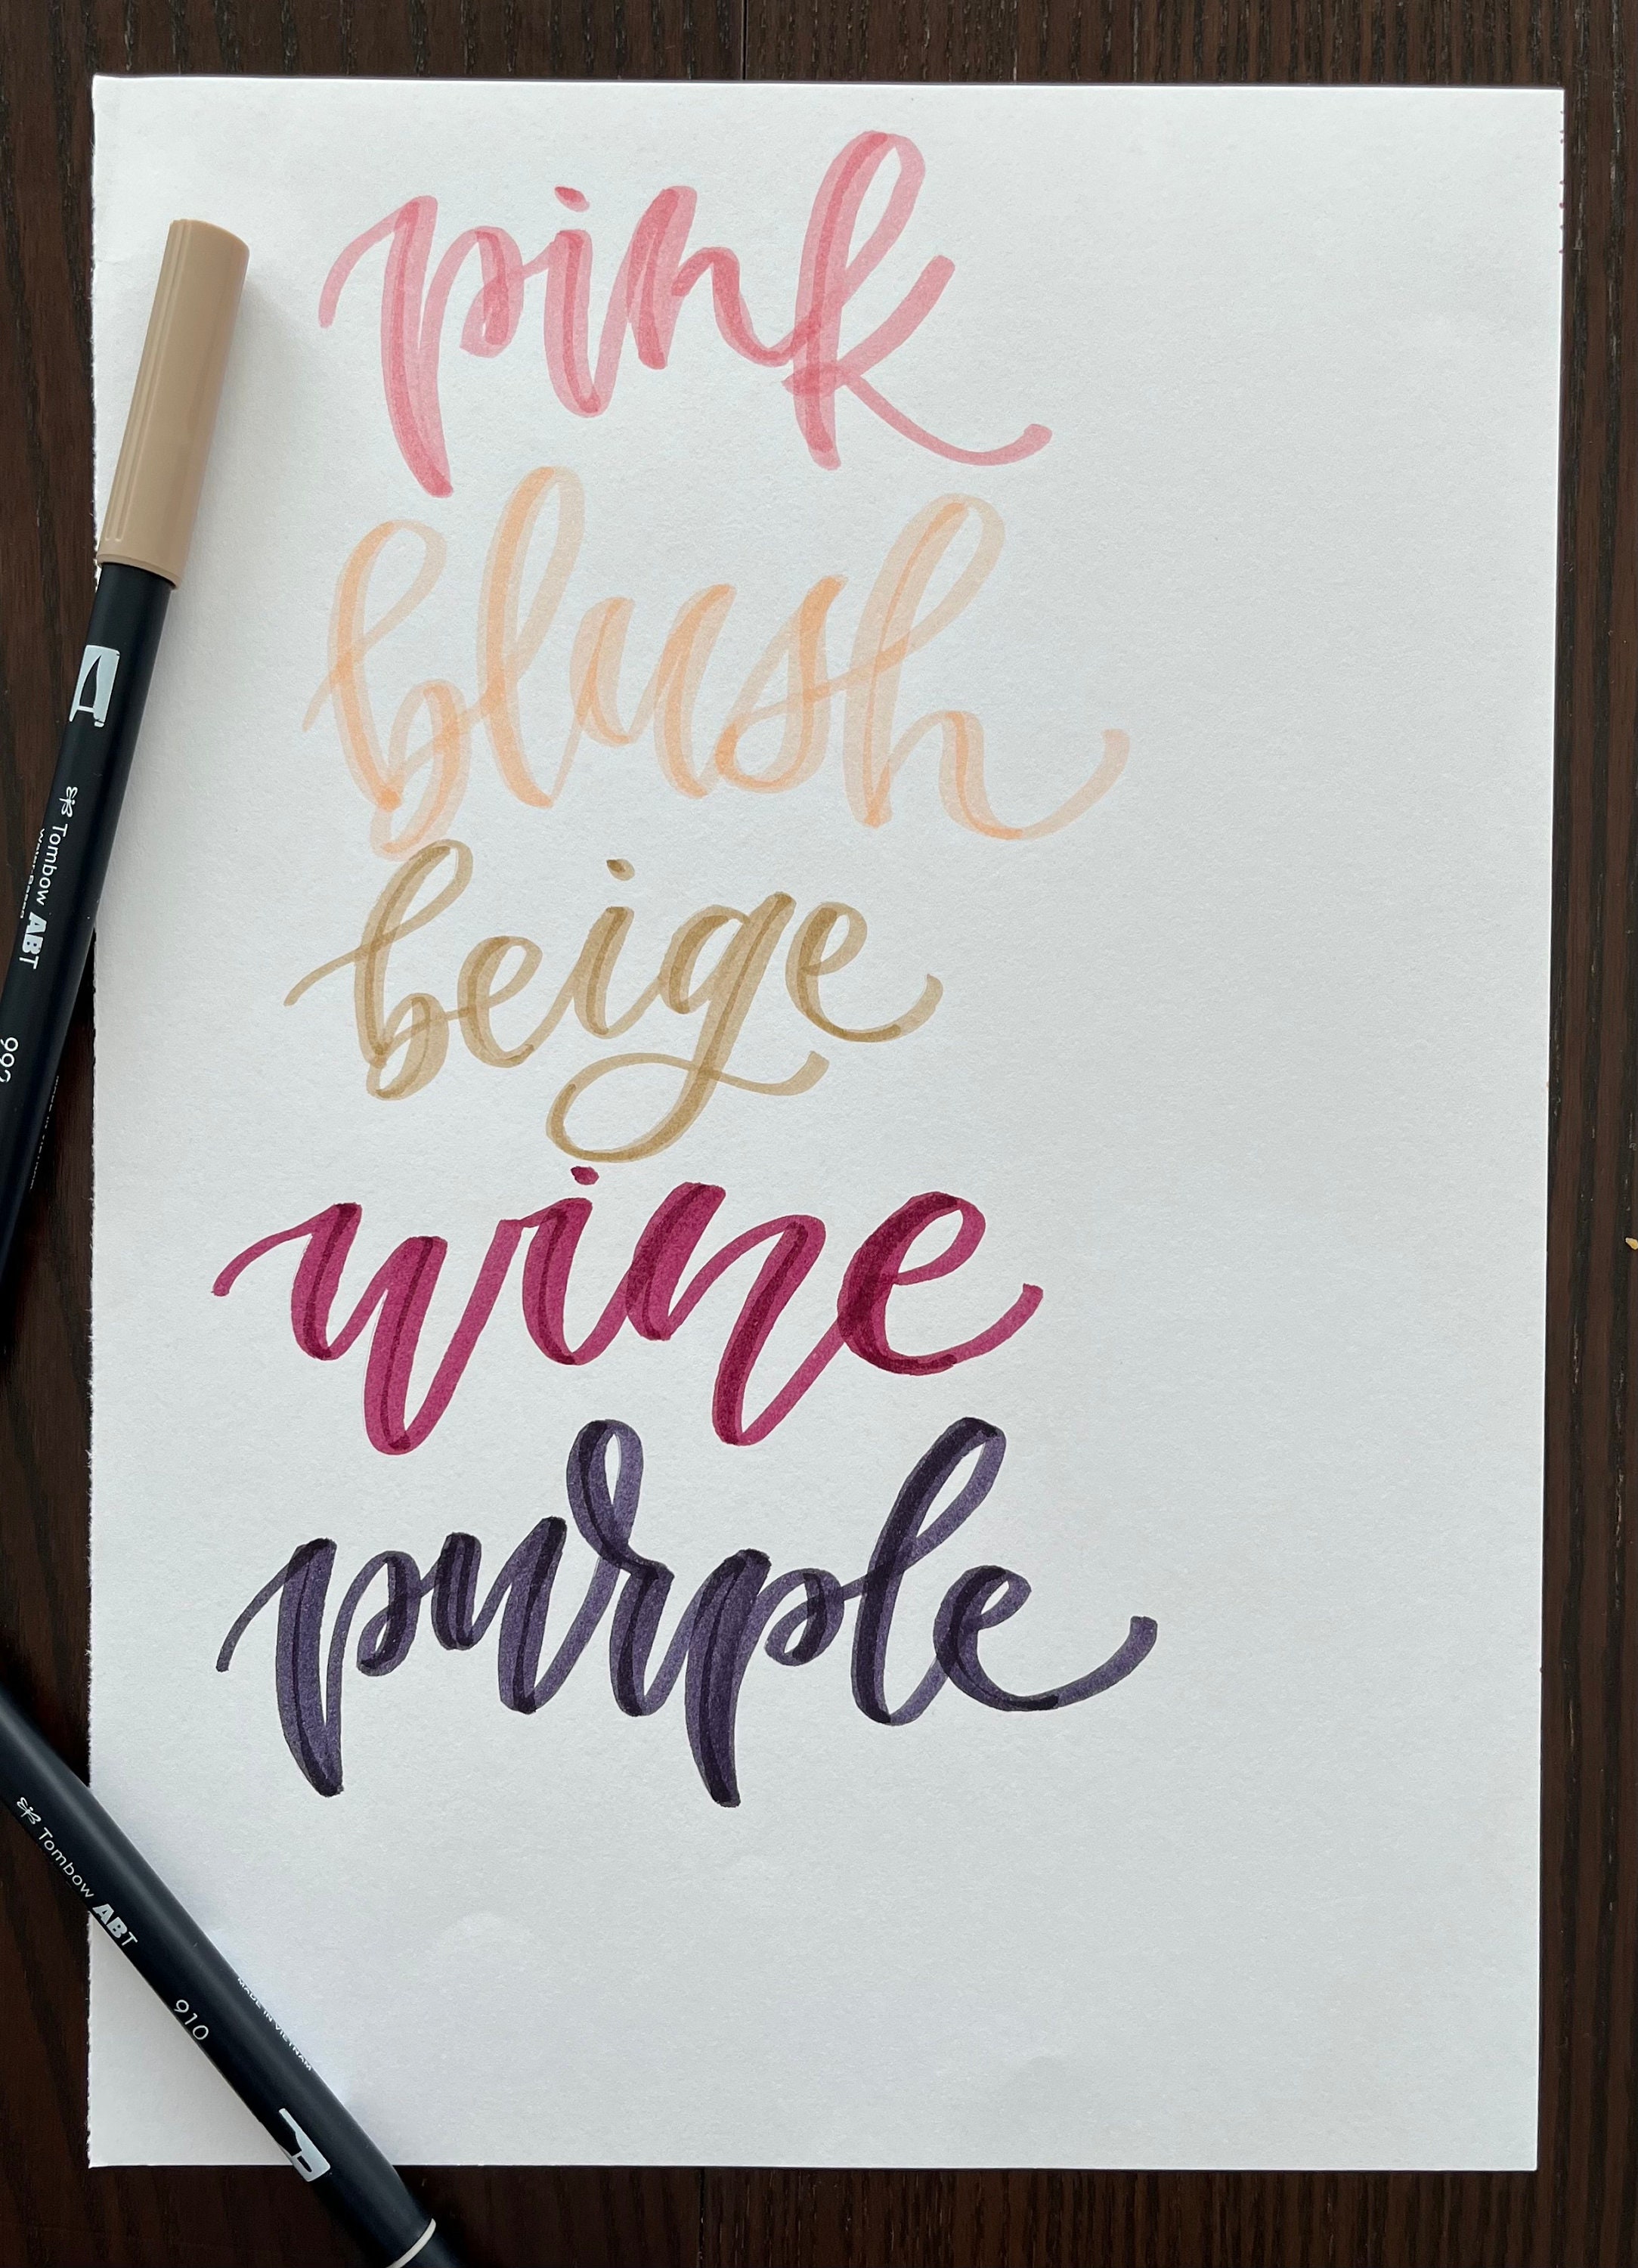 pink
blush
beige
wine
purple
Tombow ABT
Tombow ABT
910
MADE IN VIETNAM